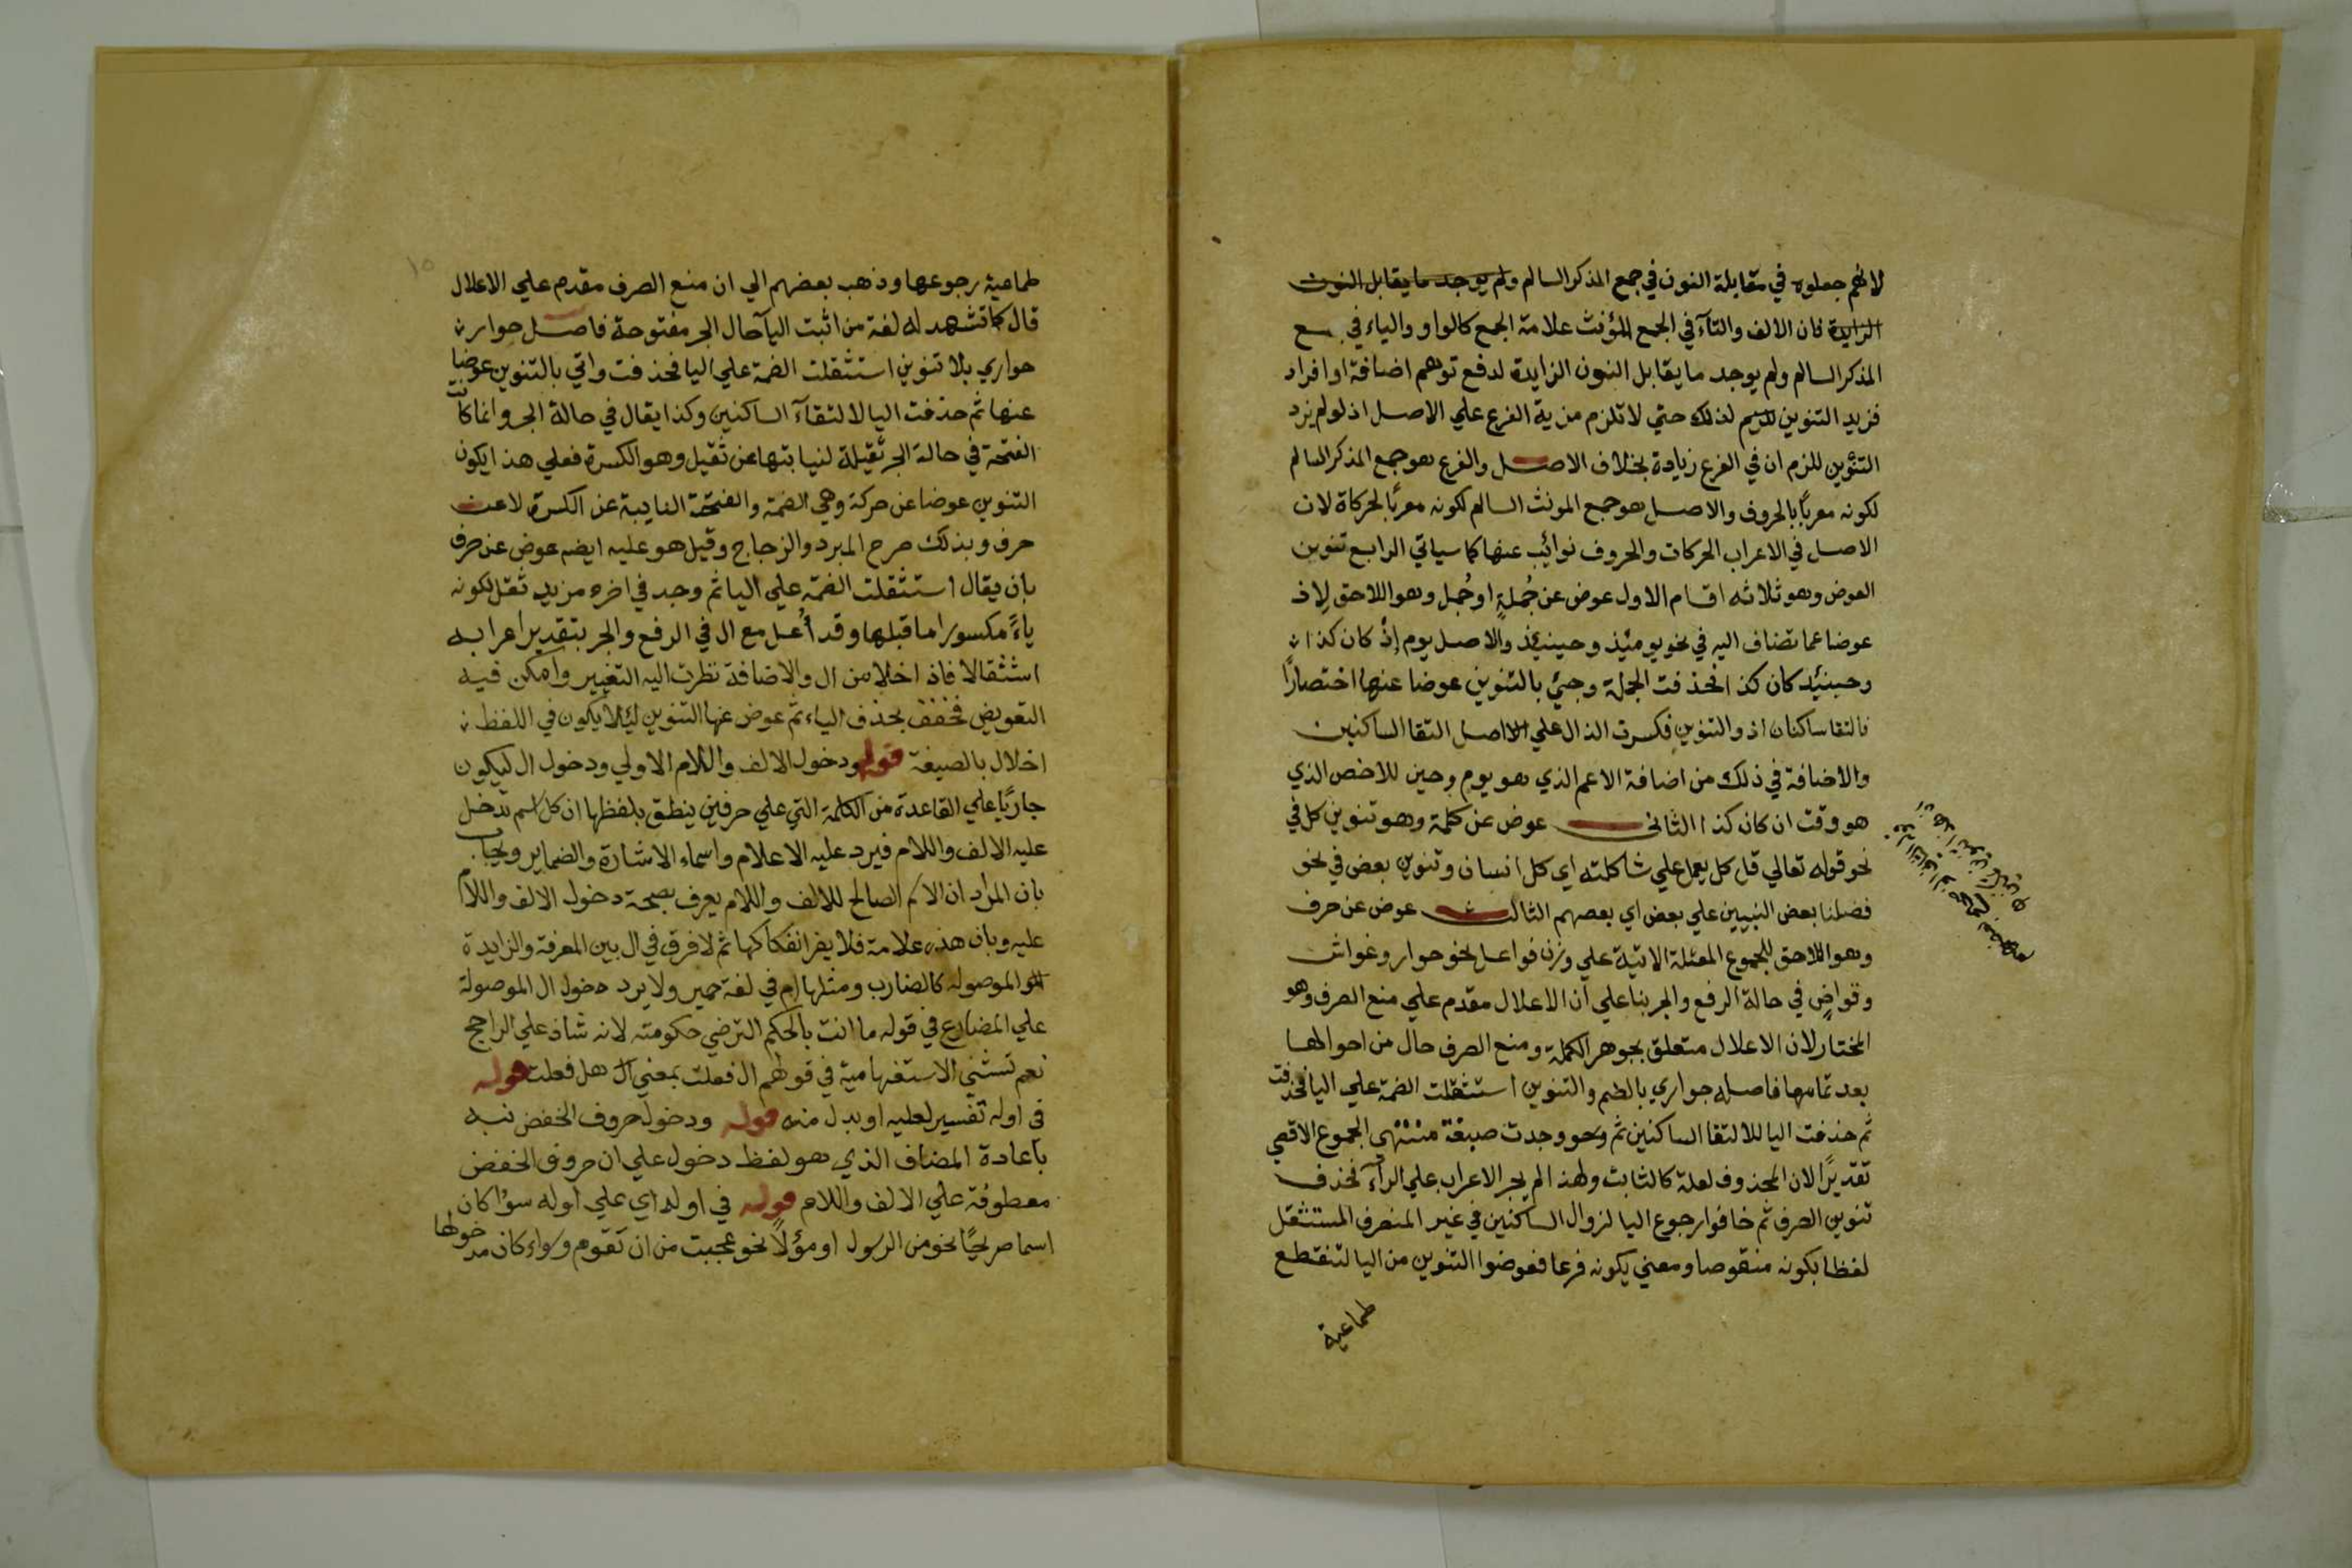 لانهم جعلوه في مقابلة النون في جمع المذكر السالم ولم يوجد ما يقابل النون
الزايدة فان الالف والتآء في الجمع المؤنث علامة الجمع كالواو والياء في جمع
المذكر السالم ولم يوجد ما يقابل النون الزايدة لدفع توهم اضافة او افراد
فزيد التنوين لذلك حتي لا تلزم مزية الفرع علي الاصل اذ لو لم نزد
التنوين للزم ان في الفرع زيادة بخلاف الاصل والفرع هو جمع المذكر السالم
لكونه معربًا بالحروف والاصل هو جمع المونث السالم لكونه معربًا بالحركاة لان
الاصل في الاعراب الحركات والحروف نوائب عنها كما سياتي الرابع تنوين
العوض وهو ثلاثه اقسام الاول عوض عن جُملةٍ او جُمل وهو اللاحق لِاذ
عوضا عما تضاف اليه في نحو يومئذ وحينئذ والاصل يوم إذْ كان كذا
وحينئذ كان كذا فحذفت الجملة وجيئ بالتنوين عوضا عنها اختصارًا
فالتقا ساكنان اذ والتنوين فكسرت الذال علي الاصل التقا الساكنين
والاضافة في ذلك من اضافة الاعم الذي هو يوم وحين للاخص الذي
هو وقت ان كان كذا الثاني عوض عن كلمة وهو تنوين كل في
نحو قوله تعالي قل كل يعمل علي شاكلته اي كل انسان وتنوين بعض في نحو
فضلنا بعض النبيين علي بعض اي بعضهم الثالث عوض عن حرف
وهو اللاحق للجموع المعتلة الاتية علي وزن فواعل نحو حوار وغواش
وقواضٍ في حالة الرفع والجر بنا علي ان الاعلال مقدم علي منع الصرف وهو
المختار لان الاعلال متعلق بجوهر الكلمة ومنع الصرف حال من احوالها
بعد تمامها فاصله جواري بالضم والتنوين استثقلت الضمة علي اليا فحذفت
ثم حذفت اليا للالتقا الساكنين ثم وجدت صيغة منتهي الجموع الاقصي
تقديرًا لان المحذوف لعلة كالثابت ولهذا لم يجر الاعراب علي الرآء فحذف
تنوين الصرف ثم خافوا رجوع اليا لزوال الساكنين في غير المنصرف المستثقل
لفظا بكونه منقوصا ومعني بكونه فرعا فعوضوا التنوين من اليا لتنقطع
طماعية
١٥
طماعية رجوعها وذهب بعضهم الي ان منع الصرف مقدم علي الاعلال
قال كما تشهد له لغة من اثبت اليآ حال الجر مفتوحة فاصل حوار
حواري بلا تنوين استثقلت الضمة علي اليا فحذفت واتي بالتنوين عوضا
عنها ثم حذفت اليا لالتقآء الساكنين وكذا يقال في حالة الجر وانما كانت
الفتحة في حالة الجر ثقيلة لنيابتها عن ثقيل وهو الكسرة فعلي هذا يكون
التنوين عوضا عن حركة وهي الضمة والفتحة النايبة عن الكسرة لا عن
حرف وبذلك صرح المبرد والزجاج وقيل هو عليه ايضه عوض عن حرف
بان يقال استثقلت الضمة علي اليا ثم وجد في اخره مزيد ثقل لكونه
ياءً مكسورا ما قبلها وقد أُعل مع ال في الرفع والجر بتقدير اعرابه
استثقالا فاذا خلا من ال والاضافة تطرق اليه التغيير وامكن فيه
التعويض فخفف بحذف الياء ثم عوض عنها التنوين ليلا يكون في اللفظ
اخلال بالصيغة قوله ودخول الالف واللام الاولي ودخول ال ليكون
جاريًا علي القاعدة من الكلمة التي علي حرفين ينطق بلفظها ان كل اسم تدخل
عليه الالف واللام فيرد عليه الاعلام واسماء الاشارة والضماير ويجاب
بان المراد ان الاسم الصالح للالف واللام يعرف بصحة دخول الالف واللام
عليه وبان هذه علامة فلا يضر انفكاكها ثم لا فرق في ال بين المعرفة والزايدة
والموصوله كالضارب ومثلها ام في لغة حمير ولا يرد دخول ال الموصولة
علي المضارع في قوله ما انت بالحكم الترضي حكومته لانه شاذ علي الراجح
نعم تستثني الاستفهامية في قولهم ال فعلت بمعني هل فعلت قوله
في اوله تفسير لعليه او بدل منه قوله ودخول حروف الخفض نبه
باعادة المضاف الذي هو لفظ دخول علي ان حروف الخفض
معطوفة علي الالف واللام قوله في اوله اي علي اوله سوا كان
اسما صريحًا نحو من الرسول او مؤلًا نحو عجبت من ان تقوم وسواء كان مدخولها